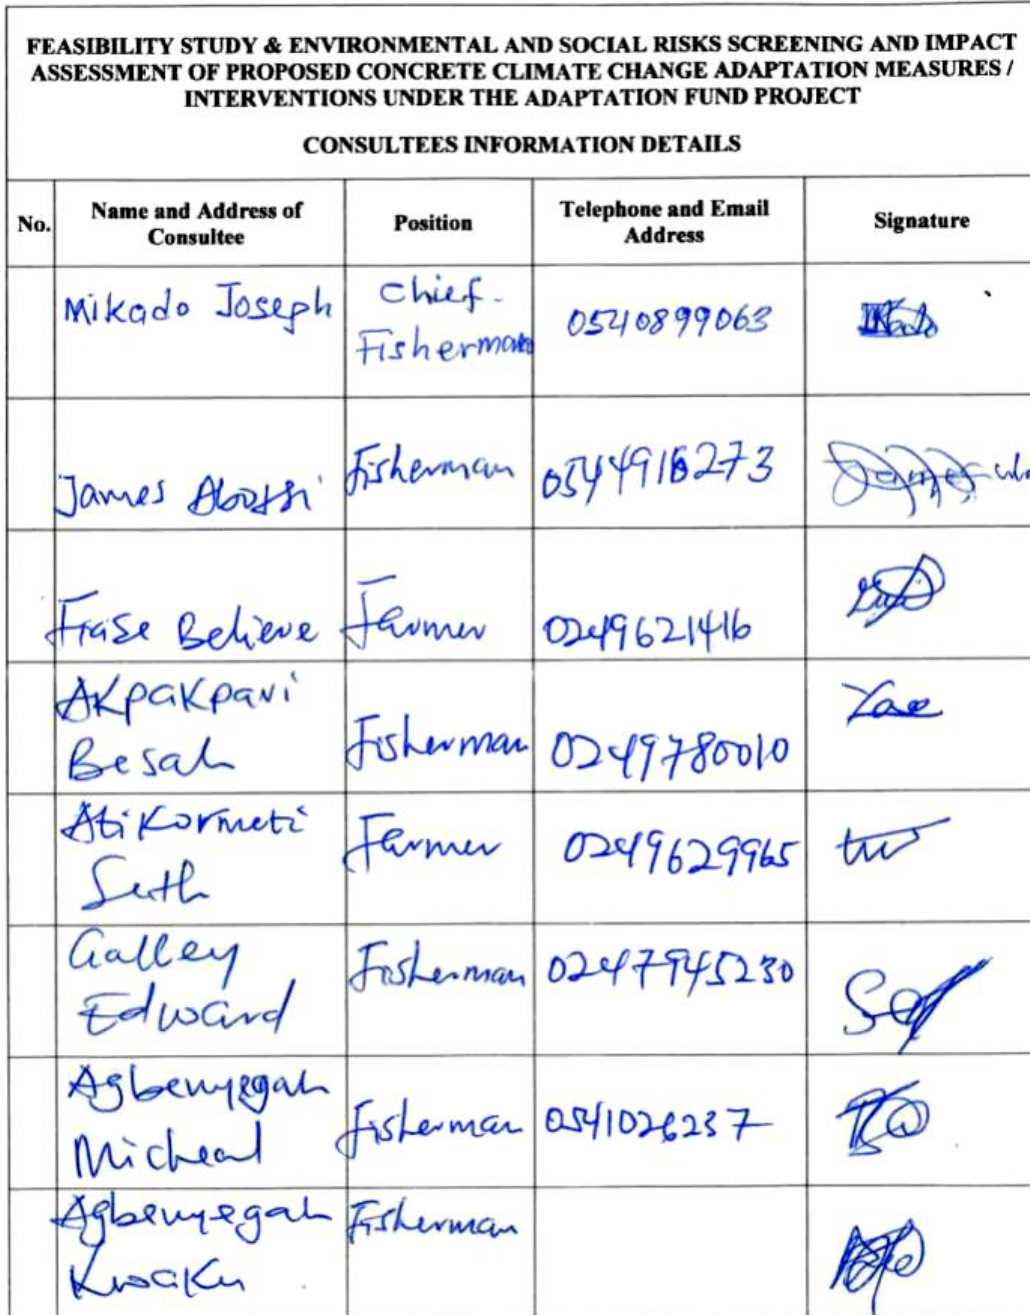 FEASIBILITY STUDY & ENVIRONMENTAL AND SOCIAL RISKS SCREENING AND IMPACT
ASSESSMENT OF PROPOSED CONCRETE CLIMATE CHANGE ADAPTATION MEASURES /
INTERVENTIONS UNDER THE ADAPTATION FUND PROJECT
CONSULTEES INFORMATION DETAILS
No. Name and Address of Consultee Position Telephone and Email Address Signature
Mikado Joseph Chief. Fisherman 0540899063
James Fisherman 0544916273
Frase Believe Farmer 0249621416
Akpakpavi Besah Fisherman 0249780010
Atikormeti Seth Farmer 0249629965
Galley Edward Fisherman 0247945230
Agbenyegah Micheal Fisherman 0541026237
Agbenyegah Kwaku Fisherman